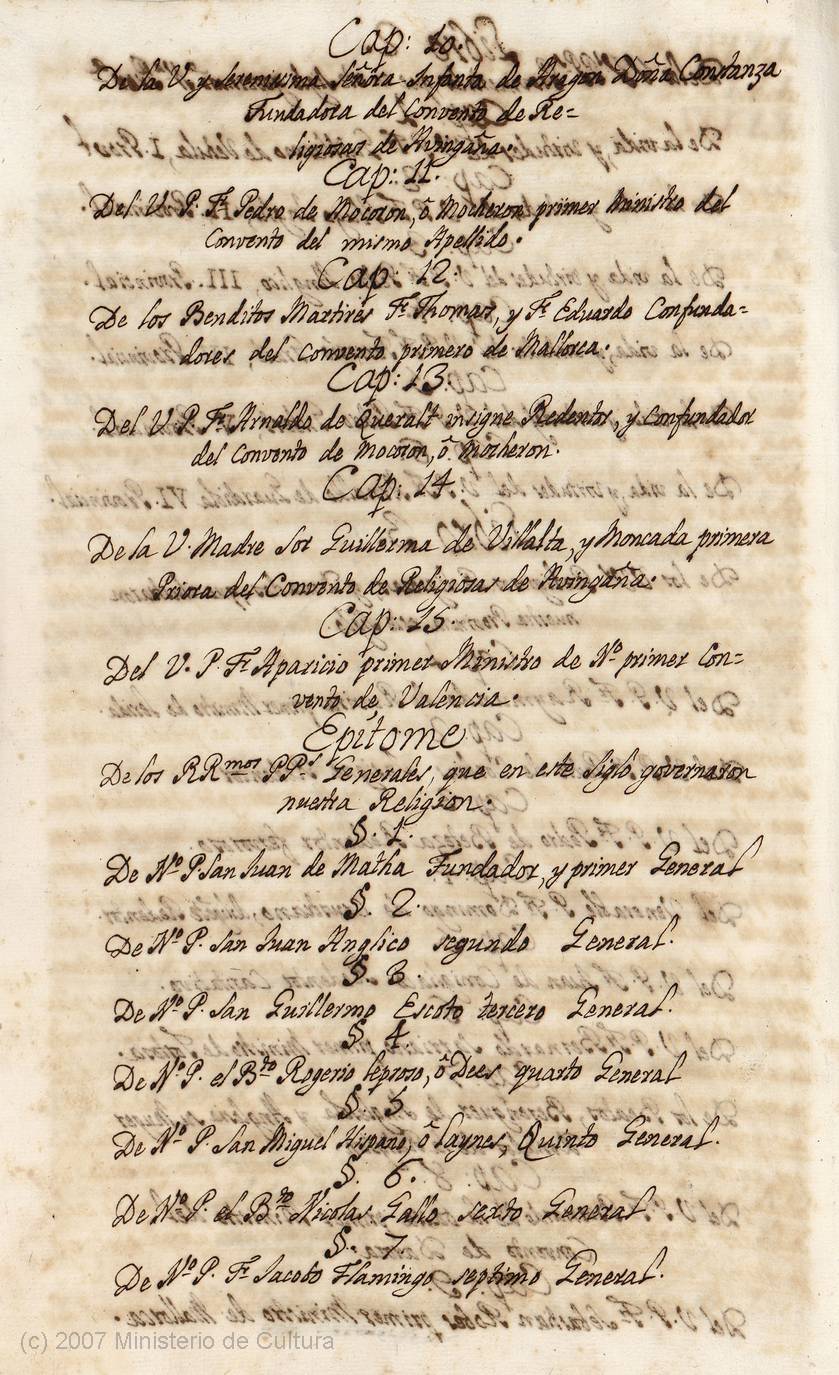 Cap: 10.
De la V. y serenissima Señora Infanta de Aragon Doña Constanza
Fundadora del Convento de Re=
ligiosas de Avingaña.
Cap: 11.
Del V. P. Fr. Pedro de Mocoron, ô Mocheron primer Ministro del
Convento del mismo Apellido.
Cap: 12.
De los Benditos Martires Fr. Thomas, y Fr. Eduardo Confunda=
dores del Convento primero de Mallorca.
Cap: 13.
Del V. P. Fr. Arnaldo de Queralt insigne Redentor, y confundador
del Convento de Mocoron, ô Mocheron.
Cap: 14.
De la V. Madre Sor Guillerma de Villalta, y Moncada primera
Priora del Convento de Religiosas de Avingaña.
Cap: 15.
Del V. P. Fr. Aparicio primer Ministro de Nº primer Con=
vento de Valencia.
Epitome
De los RRmos PPs Generales, que en este siglo governaron
nuestra Religion.
§. 1.
De Nº P. San Juan de Matha Fundador, y primer General
§. 2.
De Nº P. San Juan Anglico segundo General.
§. 3.
De Nº P. San Guillermo Escoto tercero General.
§. 4.
De Nº P. el Bto Rogerio leproso, ô Dees quarto General
§. 5
De Nº P. San Miguel Hispano, ô Laynes, Quinto General.
§. 6.
De Nº P. el Bto Nicolas Gallo sexto General
§. 7
De Nº P. Fr. Jacobo Flamingo septimo General.
(c) 2007 Ministerio de Cultura